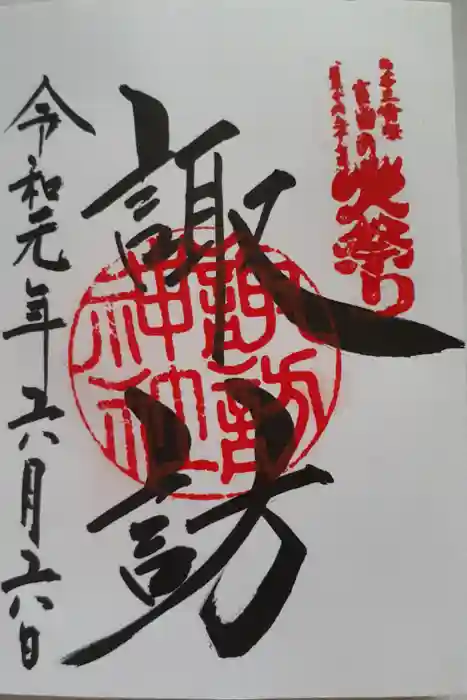 日本三奇祭
吉田の
火祭り
諏訪
諏訪
神社
令和元年六月六日